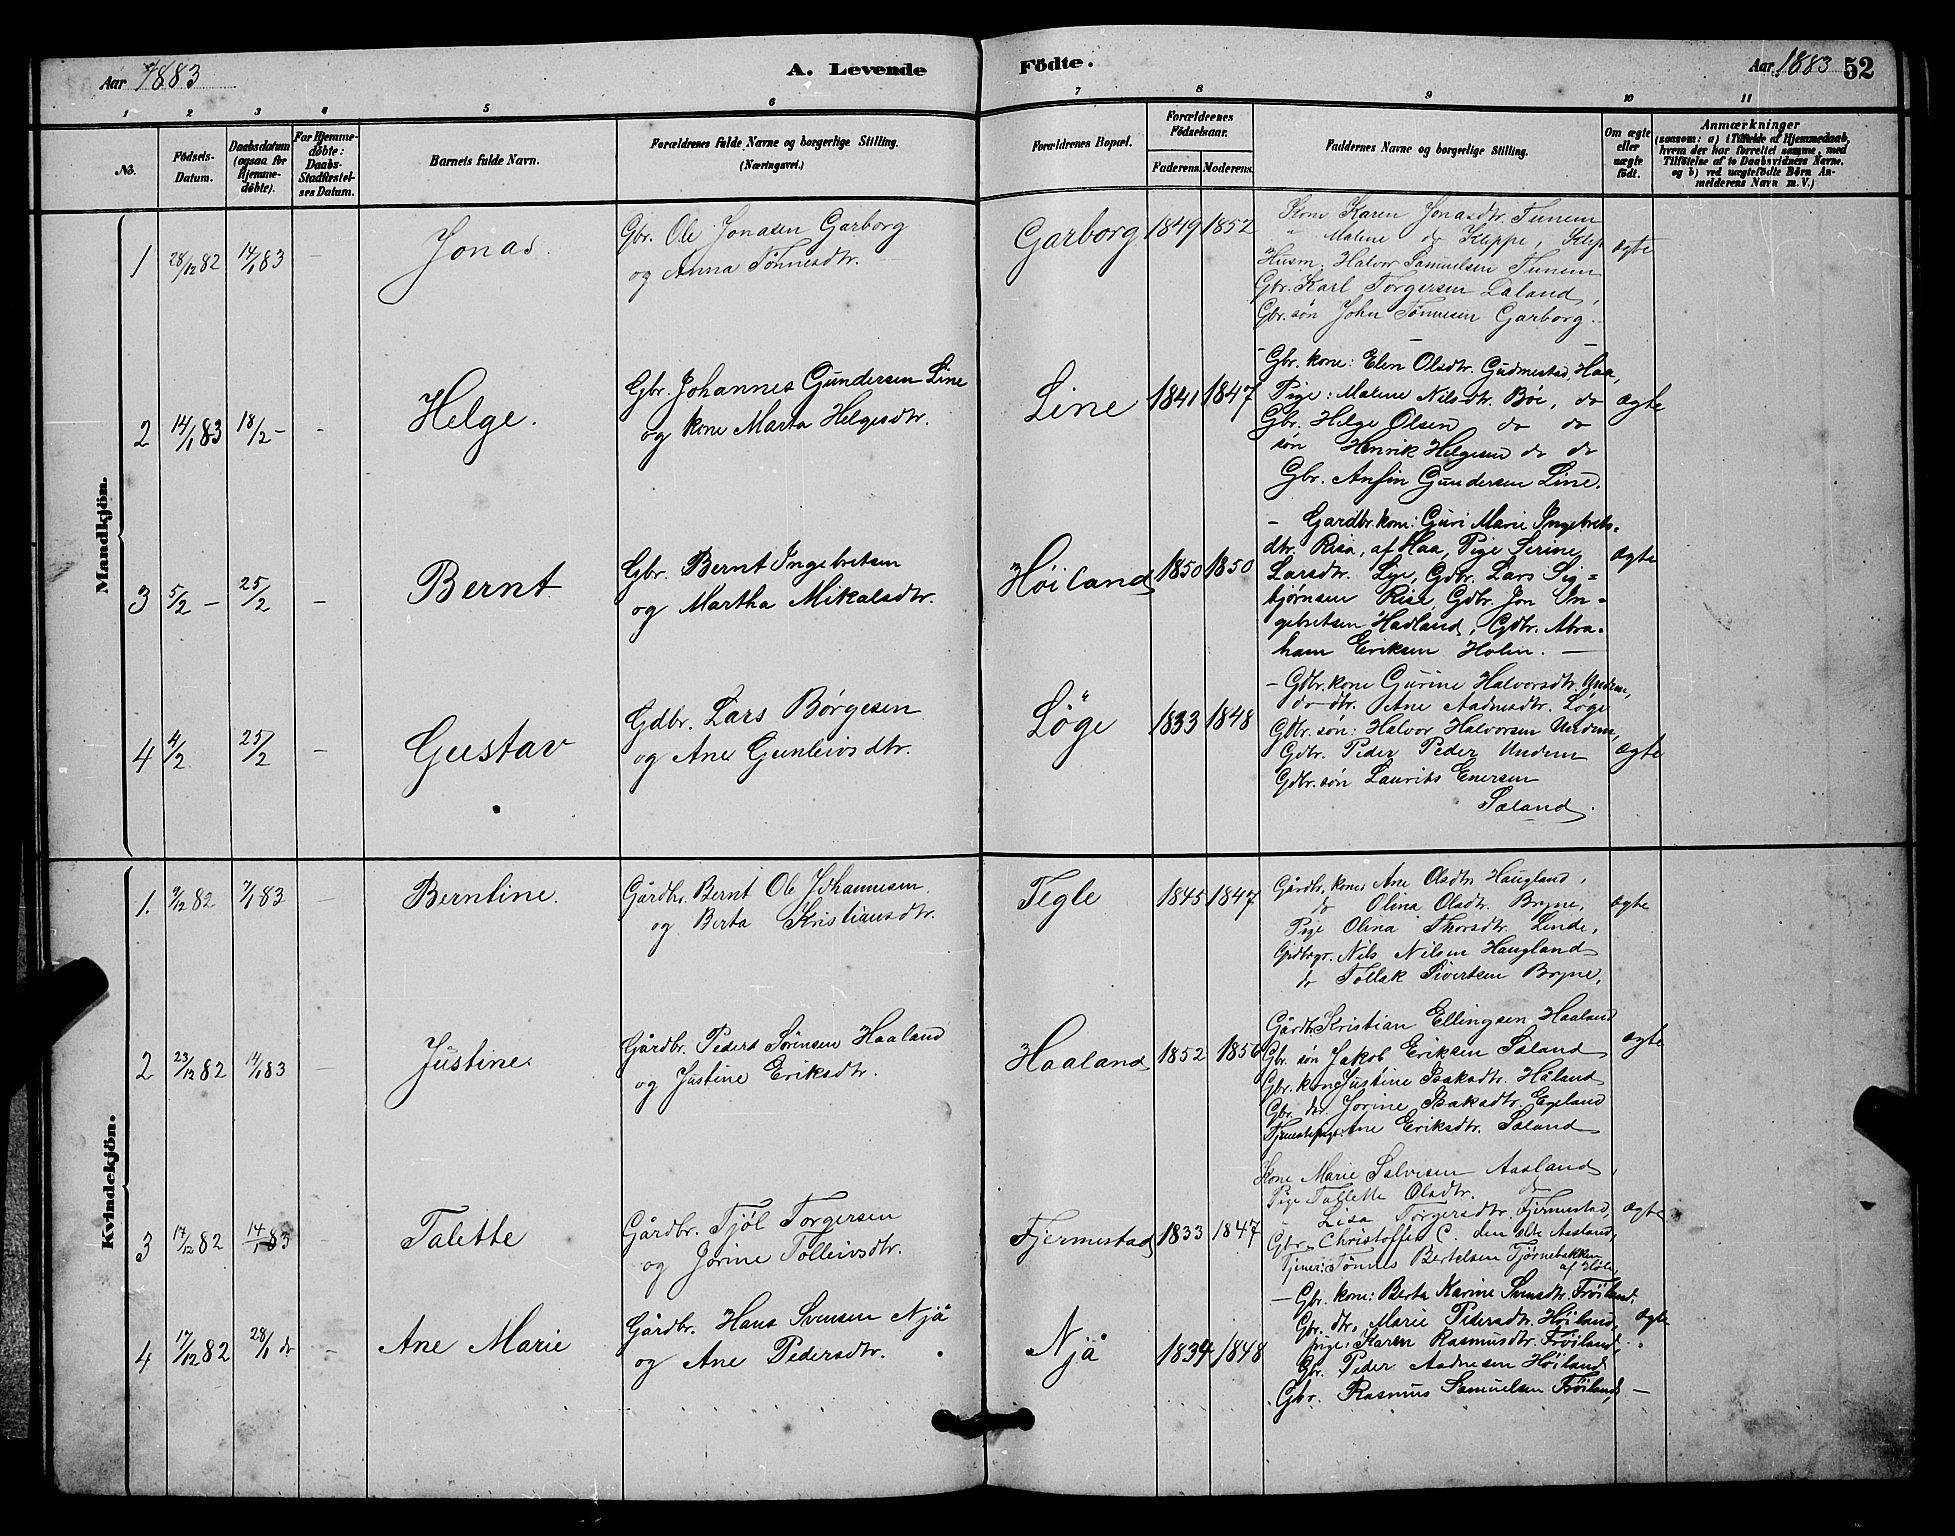 Aar 1883
A. Levende Födte.
Aar 1883 52
1 2 3 4 5 6 7 8 9 10 11
No.
Födsels-Datum.
Daabsdatum (ogsaa for Hjemmedöbte).
For Hjemmedöbte: Daabs-Stadfæstelses Datum.
Barnets fulde Navn.
Forældrenes fulde Navne og borgerlige Stilling.
(Næringsvei.)
Forældrenes Bopæl.
Forældrenes Födselsaar.
Faderens. Moderens.
Faddernes Navne og borgerlige Stilling.
Om ægte eller uægte födt.
Anmærkninger
(saasom: a) i Tilfælde af Hjemmedaab,
hvem der har forrettet samme, med
Tilföielse af to Daabsvidners Navne,
og b) ved uægtefödte Börn Anmelderens Navn m. V.)
Mandkjön.
1 28/12 82 14/1 83 – Jonas.
Gbr. Ole Jonasen Garborg
og Anna Tønnesdtr.
Garborg 1849 1852
Kone Karen Jonasdtr. Tunem
" Malene do Kleppe, Klep
Husm. Halvor Samuelsen Tunem
Gbr. Karl Torgersen Laland,
Gbr. søn John Tønnesen Garborg.
ægte
2 14/1 83 18/2 – – Helge.
Gbr. Johannes Gundersen Line
og kone Marta Helgesdtr.
Line 1841 1847
– Gbr. kone: Elen Olsdtr. Gudmestad, Haa,
Pige: Malene Nilsdtr. Bøe, do
Gbr. Helge Olsen do do
søn Henrik Helgesen do do
Gbr. Anfin Gundersen Line.
ægte
3 5/2 – 25/2 – Bernt
Gbr. Bernt Ingebretsen
og Martha Mikalsdtr.
Høiland 1850 1850
– Gardbr. kone: Guri Marie Ingebrets-
dtr. Risa, af Haa, Pige Serine
Larsdtr. Lye, Gdbr. Lars Sig-
bjørnsen Risa, Gdbr. Jon In-
gebretsen Hadland, Gdbr. Abra-
ham Eriksen Holm. –
ægte
4 4/2 25/2 – Gustav
Gdbr. Lars Børgesen
og Ane Gunleivsdtr.
Løge 1833 1848
– Gdbr. kone Gurine Halvorsdtr. Undem,
do dtr. Ane Aadnesdtr. Løge
Gdbr. søn: Halvor Halvorsen Undem,
Gdbr. Peder Peder Undem
Gdbr. søn Laurits Enersen
Sæland.
ægte
Kvindekjön.
1. 9/12 82 7/1 83 – Berntine.
Gårdbr. Bernt Ole Johannesen
og Berta Kristiansdtr.
Tegle 1845 1847
Gårdbr. kone: Ane Olsdtr. Haugland,
do Olina Olsdtr. Bryne,
Pige Olina Thorsdtr. Linde,
Nils Nilsen Haugland
do Tollak Sivertsen Bryne,
ægte
2 23/12 82 14/1 83 – Justine.
Gårdbr. Peder Sørensen Haaland
og Justine Eriksdtr.
Haaland 1852 1856
Gårdbr Kristian Ellingsen Haaland
Gbr. søn Jakob Eriksen Sæland
Gbr. kone Justine Isaksdtr. Håland
Gbr. dtr. Jorine Isaksdtr. Egeland
Tjenestepige: Ane Eriksdtr. Sæland
ægte
3 17/12 82 14/1 83 – Talette
Gårdbr. Tjøl Torgersen
og Jorine Tolleivsdtr.
Fjermestad 1833 1847
Kone Marie Salvesen Aasland,
Pige Tallette Olsdtr. do
" Lisa Torgersdtr. Fjermestad,
Gbr. Christoffer C. den elde Aasland,
Tjener: Tønnes Bertelsen Tjørnebakken
af Høle,
ægte
4 17/12 82 28/1 do – Ane Marie
Gårdbr. Hans Svensen Njå
og Ane Pedersdtr.
Njå 1834 1848
– Gbr. kone: Berta Karine Svensdtr Frøiland,
Gbr. dtr. Marie Pedersdtr. Høiland,
pige: Karen Rasmusdtr. Frøiland,
Gbr. Peder Aadnesen Høiland
Gbr. Rasmus Samuelsen Frøiland, –
ægte